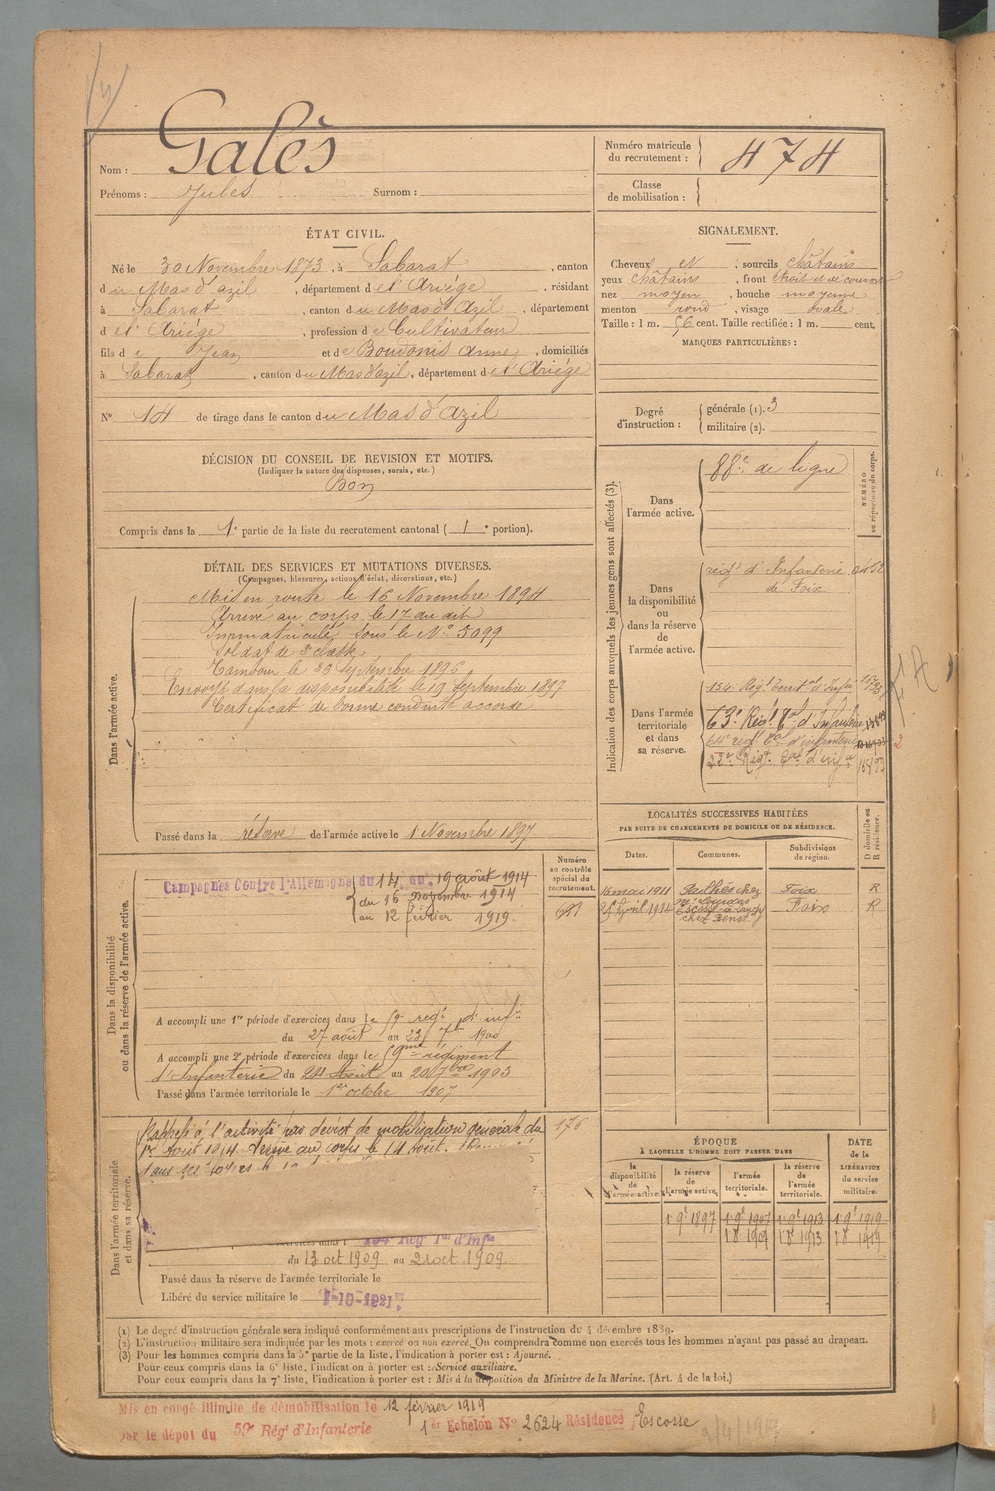 Nom : Galès
Prénoms : Jules Surnom :
Numéro matricule du recrutement : 474
Classe de mobilisation :
ÉTAT CIVIL.
Né le 30 Novembre 1873, à Sabarat, canton
du Mas d'azil, département de l'Ariége, résidant
à Sabarat, canton du Mas d'Azil, département
de l'Ariége, profession de Cultivateur
fils de Jean et de Boudonis Anne, domiciliés
à Sabarat, canton du Mas d'azil, département de l'Ariége
N° 14 de tirage dans le canton du Mas d'Azil
SIGNALEMENT.
Cheveux et, sourcils châtains
yeux châtains, front étroit et découvert
nez moyen, bouche moyenne
menton rond, visage ovale
Taille : 1 m. 56 cent. Taille rectifiée : 1 m. cent.
MARQUES PARTICULIÈRES :
Degré d'instruction : générale (1). 3
militaire (2).
DÉCISION DU CONSEIL DE REVISION ET MOTIFS.
(Indiquer la nature des dispenses, sursis, etc.)
Bon
Compris dans la 1e partie de la liste du recrutement cantonal (1e portion).
DÉTAIL DES SERVICES ET MUTATIONS DIVERSES.
(Campagnes, blessures, actions d'éclat, décorations, etc.)
Dans l'armée active.
Mis en route le 16 Novembre 1894
Arrivé au corps le 17 du dit
Immatriculé sous le N° 5099
Soldat de 2e classe
Tambour le 23 Septembre 1896
Envoyé dans la disponibilité le 19 Septembre 1897
Certificat de bonne conduite accordé
Passé dans la réserve de l'armée active le 1 Novembre 1897
Indication des corps auxquels les jeunes gens sont affectés (3).
NUMÉRO au répertoire du corps.
Dans l'armée active.
88e de ligne
Dans la disponibilité ou dans la réserve de l'armée active.
régt d'Infanterie
de Foix
Dans l'armée territoriale et dans sa réserve.
134e Régt Territal d'Infie
63e Régt Tal d'Infanterie
64e régt Tal d'infanterie
LOCALITÉS SUCCESSIVES HABITÉES
PAR SUITE DE CHANGEMENTS DE DOMICILE OU DE RÉSIDENCE.
Dates. Communes. Subdivisions de région. D domicile ou R résidence.
16 mai 1911 Pailhés chez Foix R
25 Avril 1914 Foix R
Dans la disponibilité ou dans la réserve de l'armée active.
Numéro au contrôle spécial du recrutement.
Campagnes Contre l'Allemagne du 14 au 19 août 1914
du 16 novembre 1914
au 12 février 1919.
681
A accompli une 1re période d'exercices dans le 59e régt d'infie
du 27 août au 23 7bre 1900
A accompli une 2e période d'exercices dans le 59me régiment
d'Infanterie du 24 Août au 20 7bre 1903
Passé dans l'armée territoriale le 1er octobre 1907
Dans l'armée territoriale et dans sa réserve.
Rappelé à l'activité par décret de mobilisation générale du
1er Août 1914. Arrivé au corps le 14 Août.
176
du 13 oct 1909 au 21 oct 1909
Passé dans la réserve de l'armée territoriale le
Libéré du service militaire le 1-10-1921
ÉPOQUE
À LAQUELLE L'HOMME DOIT PASSER DANS
la disponibilité de l'armée active. la réserve de l'armée active. l'armée territoriale. la réserve de l'armée territoriale.
DATE de la LIBÉRATION du service militaire.
1 9e 1897 1 9e 1907 1 9e 1913 1 9e 1919
1 8e 1907 1 8e 1913 1 8e 1919
(1) Le degré d'instruction générale sera indiqué conformément aux prescriptions de l'instruction du 4 décembre 1889.
(2) L'instruction militaire sera indiquée par les mots : exercé ou non exercé. On comprendra comme non exercés tous les hommes n'ayant pas passé au drapeau.
(3) Pour les hommes compris dans la 5e partie de la liste, l'indication à porter est : Ajourné.
Pour ceux compris dans la 6e liste, l'indication à porter est : Service auxiliaire.
Pour ceux compris dans la 7e liste, l'indication à porter est : Mis à la disposition du Ministre de la Marine. (Art. 4 de la loi.)
Mis en congé illimité de démobilisation le 12 février 1919
1er Echelon N° 2624 Résidence Escosse
par le dépôt du 59e Régt d'Infanterie